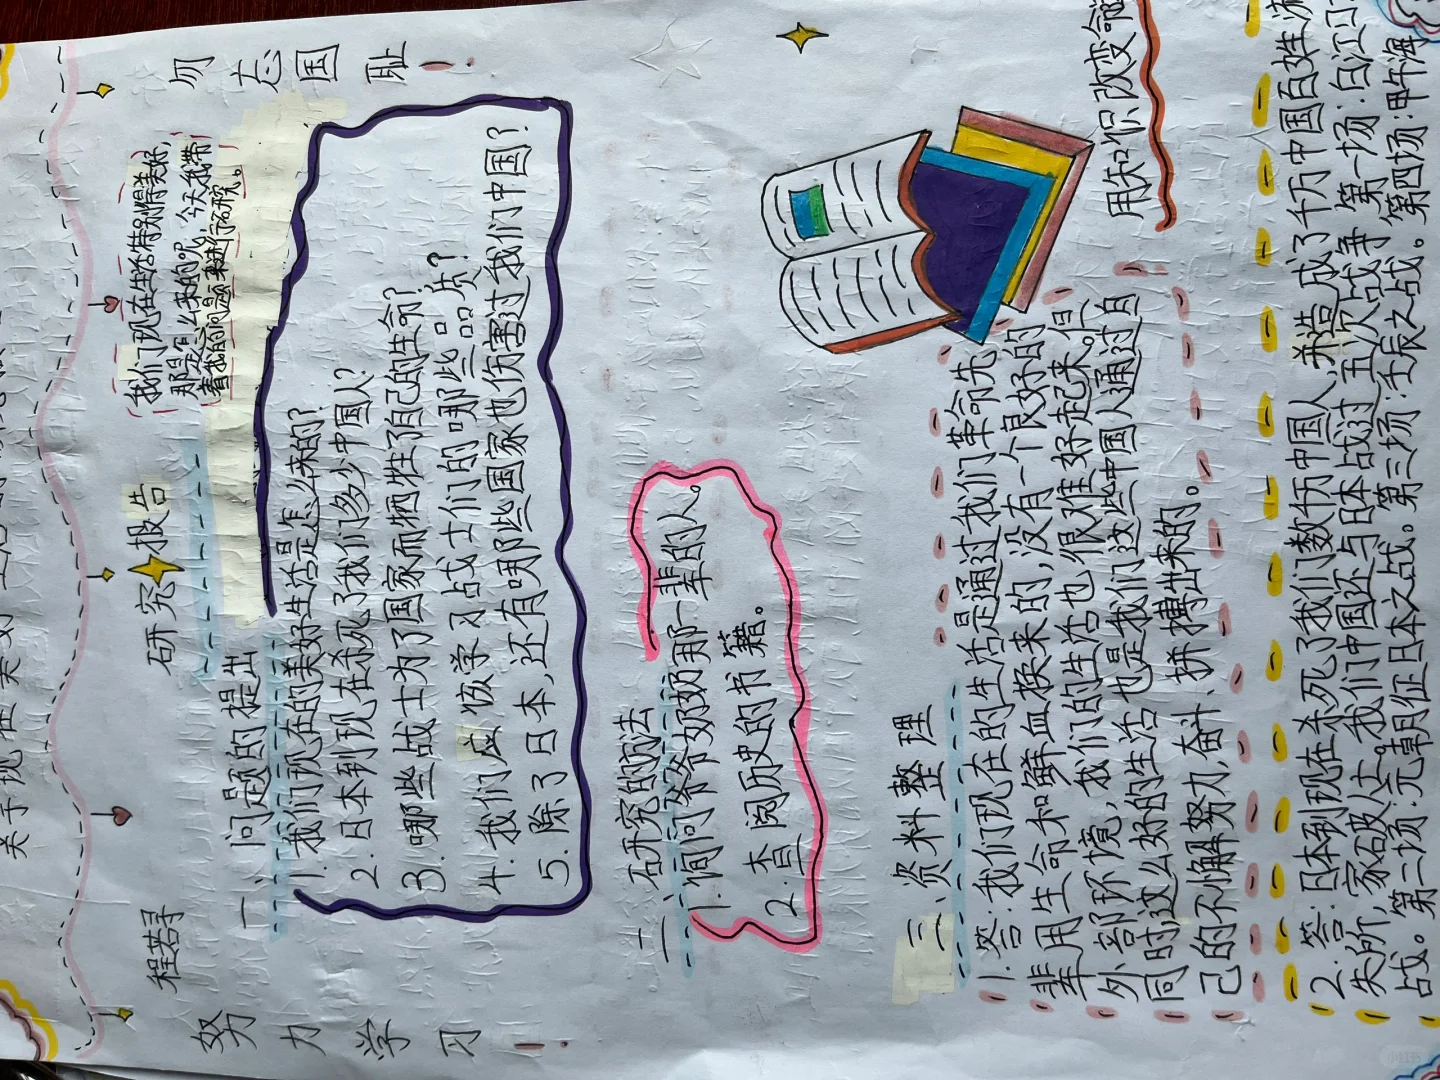 关于现在美好生活的
程若寻
研究报告
我们现在生活特别得美好，
那是怎么来的呢，今天我带
着我的问题来进行探究。
努力学习！
勿忘国耻！
一、问题的提出
1.我们现在的美好生活是怎么来的？
2.日本到现在杀死了我们多少中国人？
3.哪些战士为了国家而牺牲了自己的生命？
4.我们应该学习战士们的哪些品质？
5.除了日本，还有哪些国家也伤害过我们中国？
二、研究的方法
1.询问爷爷奶奶那一辈的人。
2.查阅历史的书籍。
三、资料整理
1.答：我们现在的生活是通过我们革命先
辈用生命和鲜血换来的，没有一个良好的
外部环境，我们的生活也很难好起来。但
同时这么好的生活也是我们这些中国人通过自
己的不懈努力，奋斗、拼搏出来的。
用知识改变命运
2.答：日本到现在杀死了我们数伤中国人，并造成了千万中国百姓流
失所，家破人亡。我们中国还与日本战过五次战争，第一场：白江口
战。第二场：元朝征日本之战。第三场：壬辰之战。第四场：甲午海